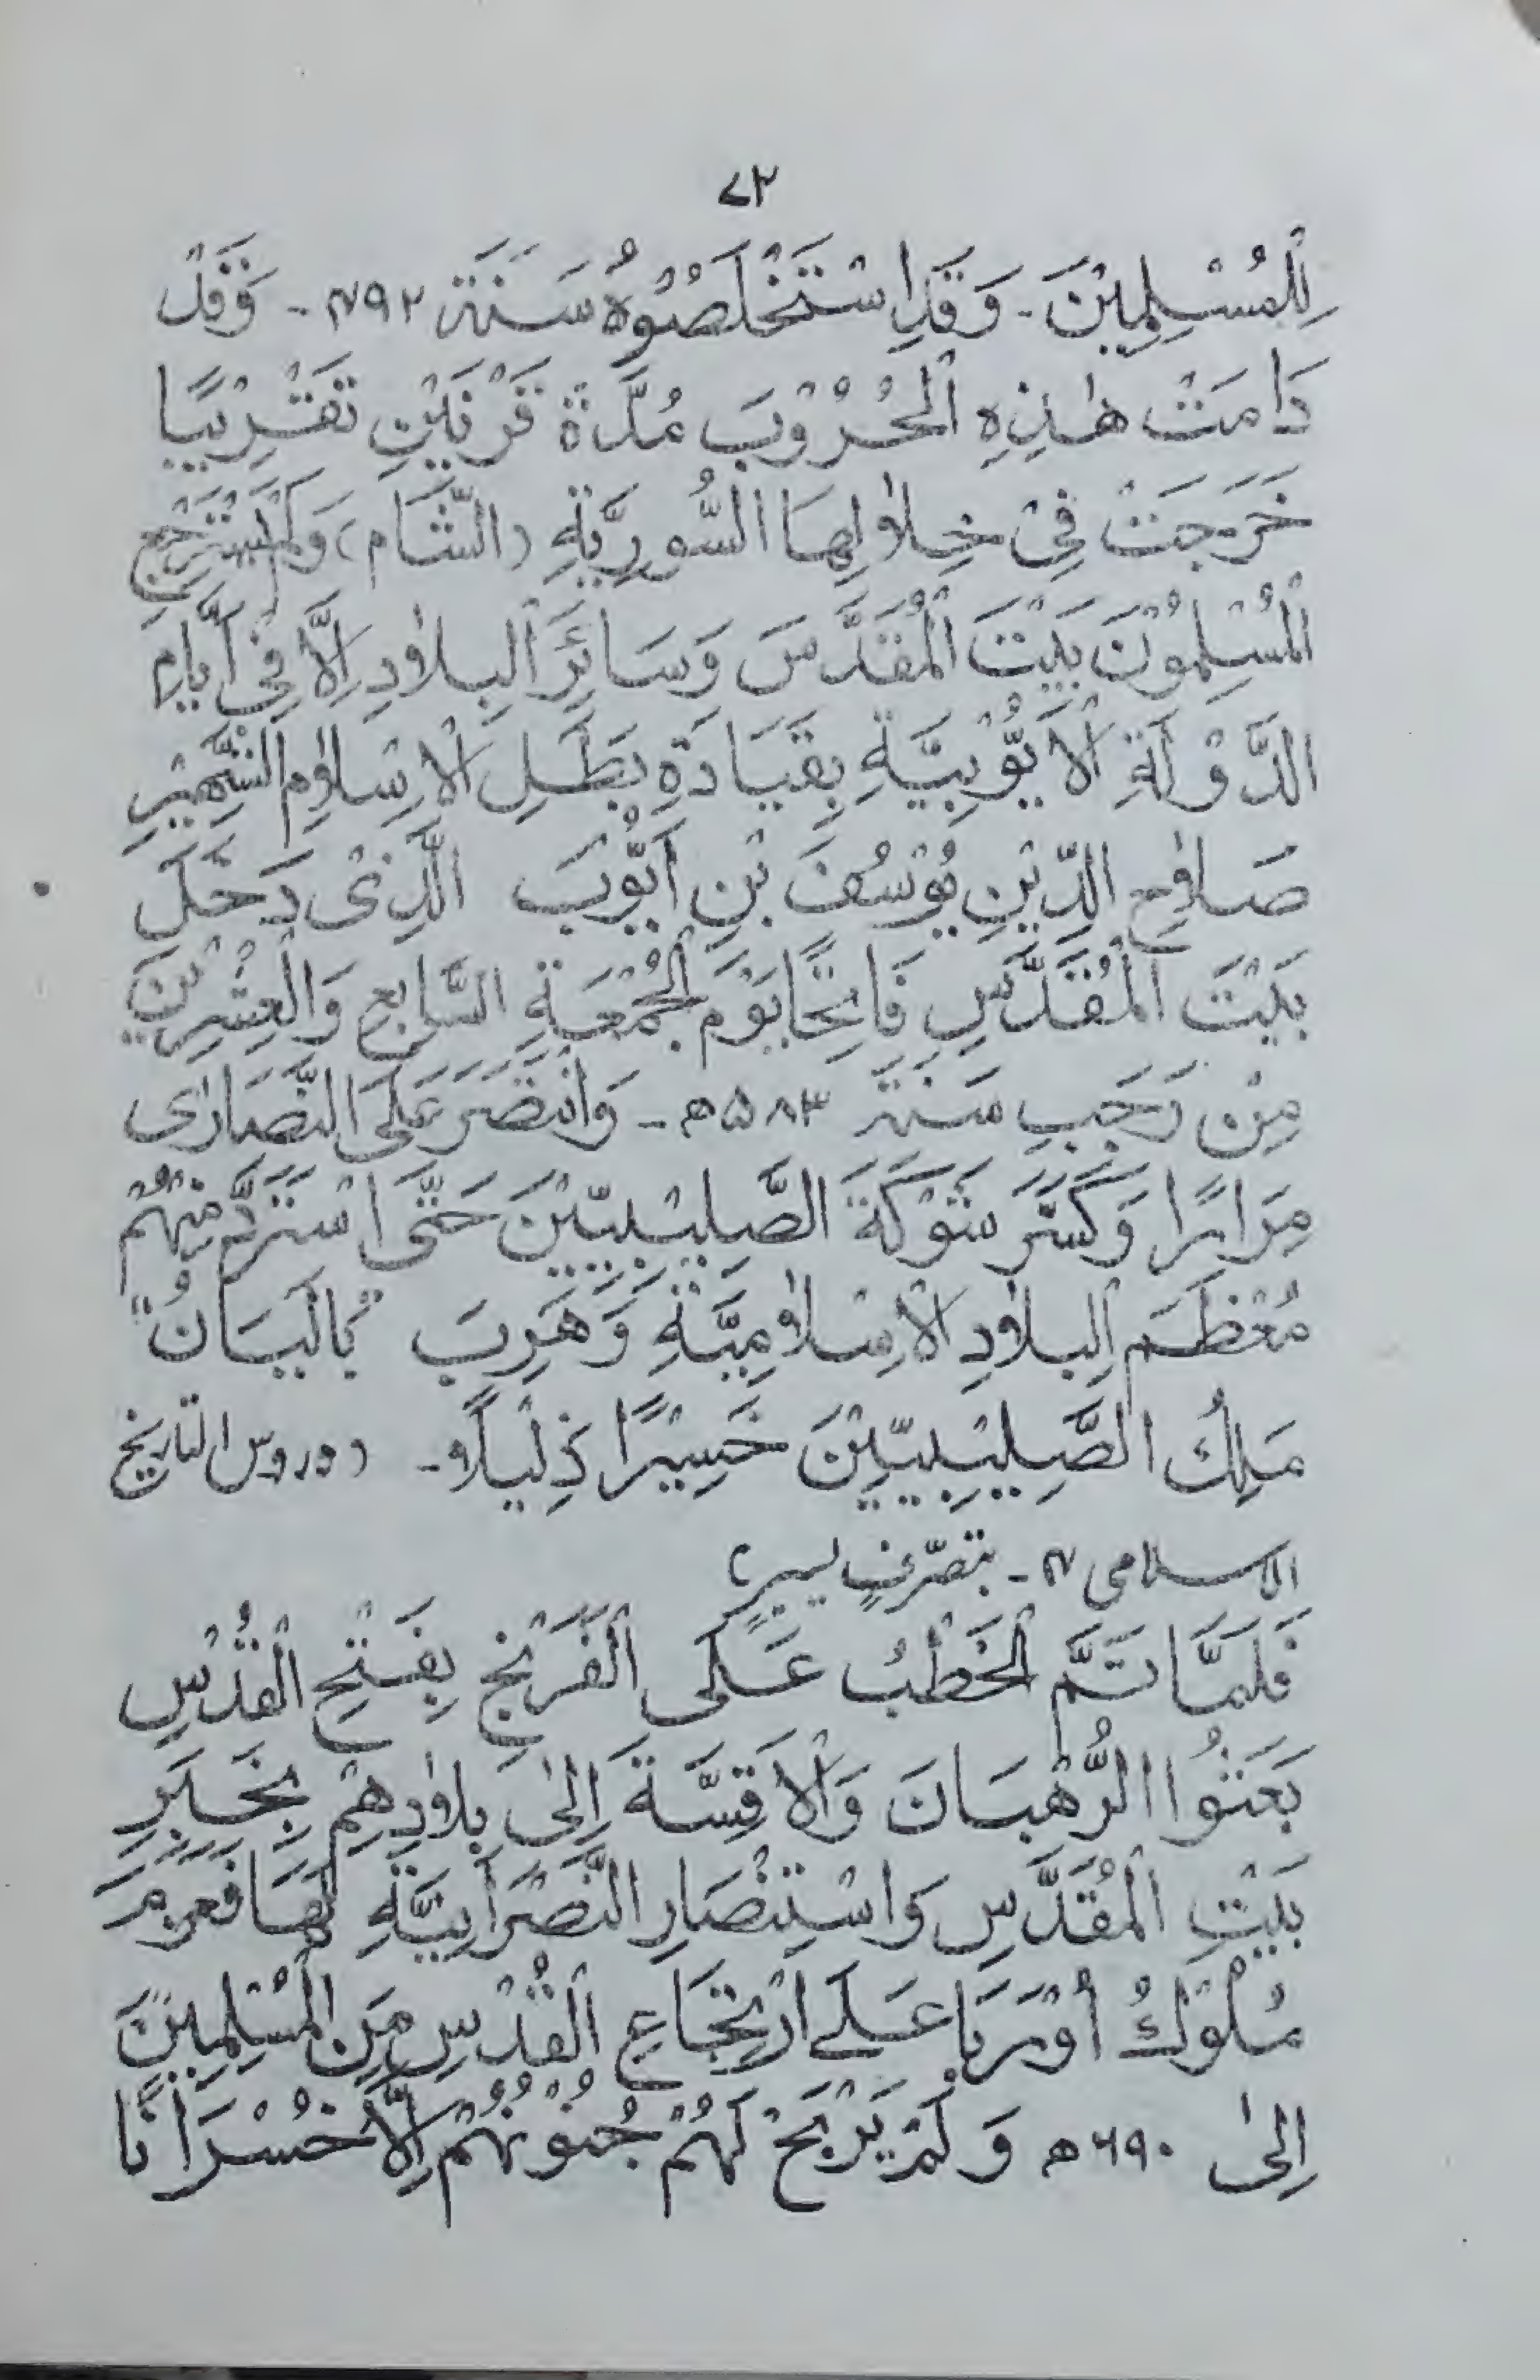 ۷۲
لِلْمُسْلِمِيْنَ۔ وَقَدِ اسْتَخْلَصُوْهُ سَنَةَ ۴۹۲ھ۔ وَقَدْ
دَامَتْ هٰذِهِ الْحُرُوْبَ مُدَّةَ قَرْنَيْنِ تَقْرِيْبًا
خَرَجَتْ فِىْ خِلَالِهَا السُّورِيَّةِ (الشَّام) وَلَمْ يَسْتَرْجِعِ
الْمُسْلِمُوْنَ بَيْتَ الْمُقَدَّسَ وَسَائِرَ الْبِلَادِ اِلَّا فِىْ اَيَّامِ
الدَّوْلَةِ الْاَيُّوْبِيَّةِ بِقِيَادَةِ بَطَلِ الْاِسْلَامِ الشَّهِيْرِ
صَلَاحِ الدِّيْنِ يُوْسُفَ بْنِ اَيُّوْبَ الَّذِىْ دَخَلَ
بَيْتَ الْمُقَدَّسِ فَاتِحًا يَوْمَ الْجُمُعَةِ السَّابِعِ وَالْعِشْرِيْنَ
مِنْ رَجَبِ سَنَةَ ۵۸۳ھ۔ وَانْتَصَرَ عَلَى النَّصَارٰى
مِرَارًا وَكَسَّرَ شَوْكَةَ الصَّلِيْبِيّيْنَ حَتَّى اسْتَرَدَّ مِنْهُمْ
مُعْظَمَ الْبِلَادِ الْاِسْلَامِيَّةِ وَهَرِبَ "بَالْبَيَانُ"
مَلِكُ الصَّلِيْبِيّيْنَ خَسِيْرًا ذَلِيْلًا۔ (دروس التاريخ
الاسلامی ۴۔ بتصرّفٍ یسیرٍ)
فَلَمَّا تَمَّ الْخَطْبُ عَلَى الْفَرَنْجِ بِفَتْحِ الْقُدْسِ
بَعَثُوا الرُّهْبَانَ وَالْاَقِسَّةَ اِلىٰ بِلَادِهِمْ بِخَبَرِ
بَيْتِ الْمُقَدَّسِ وَاسْتِنْصَارِ النَّصْرَانِيَّةِ لَهَا فَعَزَمَ
مُلُوْكُ اُوْرَبَا عَلٰى ارْتِجَاعِ الْقُدْسِ مِنَ الْمُسْلِمِيْنَ
اِلىٰ ۶۹۰ھ وَلَمْ يَرْبَحْ لَهُمْ جُنُوْنُهُمْ اِلَّا خُسْرَانًا